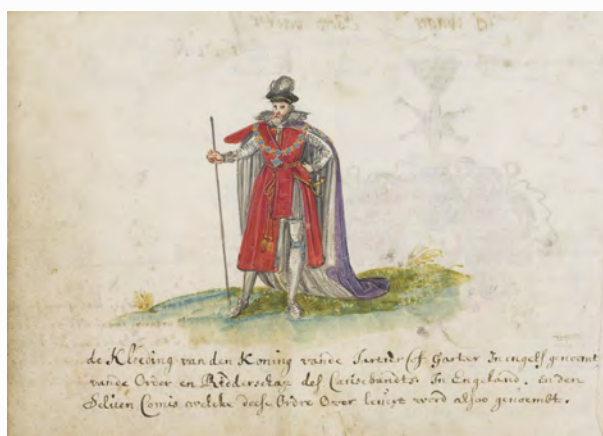 de Kleeding van den Koning vande Jartier of Garter In engelś genoemt
vande Order en Ridderschap des Cousebandts. In Engeland. en den
Selven Comis welcke deese Ordre Over word alsoo genoembt.